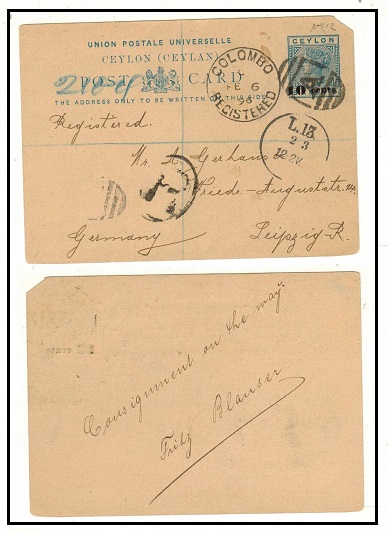 UNION POSTALE UNIVERSELLE
CEYLON (CEYLAN)
POST CARD
THE ADDRESS ONLY TO BE WRITTEN ON THIS SIDE
CEYLON
10 cents
COLOMBO
FE 6
96
REGISTERED
Registered.
L.13.
2 3
Mr. A. Gerhans
Friedr. Auguststr. 14.
Germany Leipzig-R.
Consignment on the way.
Fritz Blauser